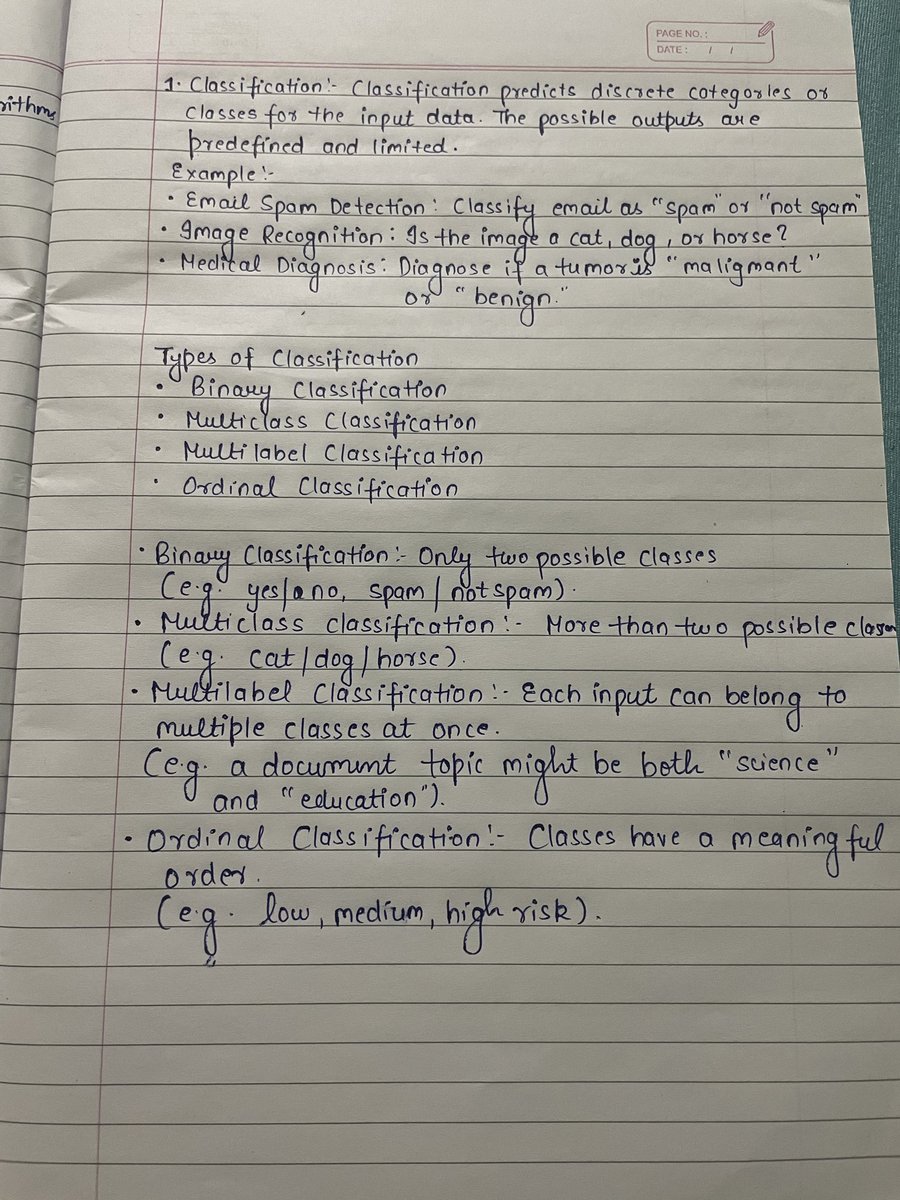 PAGE NO.:
DATE: / /
rithms
1. Classification:- Classification predicts discrete categories or
classes for the input data. The possible outputs are
predefined and limited.
Example:-
• Email Spam Detection: Classify email as "spam" or "not spam"
• Image Recognition: Is the image a cat, dog, or horse?
• Medical Diagnosis: Diagnose if a tumor is "maligmant"
or "benign."
Types of Classification
• Binary Classification
• Multiclass Classification
• Multilabel Classification
• Ordinal Classification
• Binary Classification:- Only two possible classes
(e.g. yes/no, spam/not spam).
• Multiclass classification:- More than two possible classes
(e.g. cat/dog/horse).
• Multilabel Classification:- Each input can belong to
multiple classes at once.
(e.g. a document topic might be both "science"
and "education").
• Ordinal Classification:- Classes have a meaningful
order.
(e.g. low, medium, high risk).